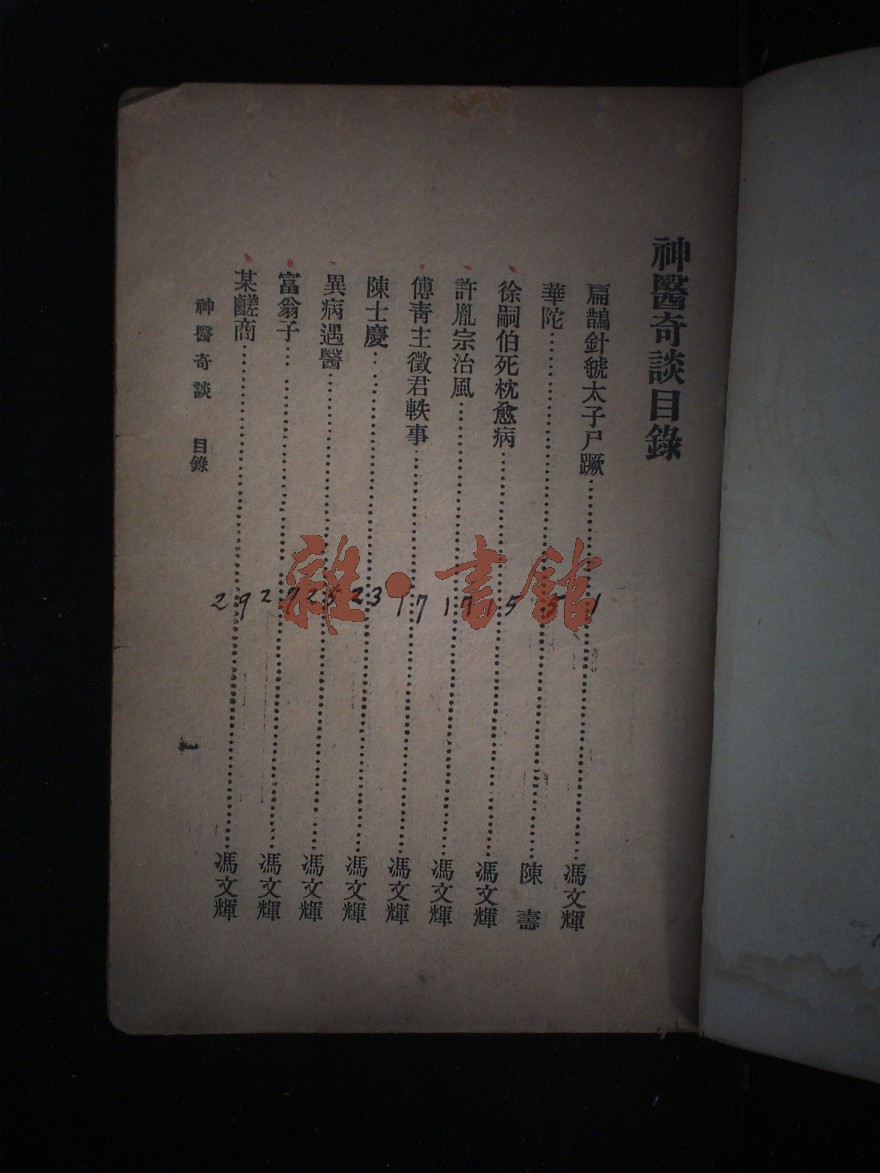 神醫奇談目錄
扁鵲針虢太子尸蹶……1……馮文輝
華陀……5……陳壽
徐嗣伯死枕愈病……5……馮文輝
許胤宗治風……17……馮文輝
傅青主徵君軼事……17……馮文輝
陳士慶……23……馮文輝
異病遇醫……25……馮文輝
富翁子……27……馮文輝
某鹺商……29……馮文輝
神醫奇談 目錄
雜·書館